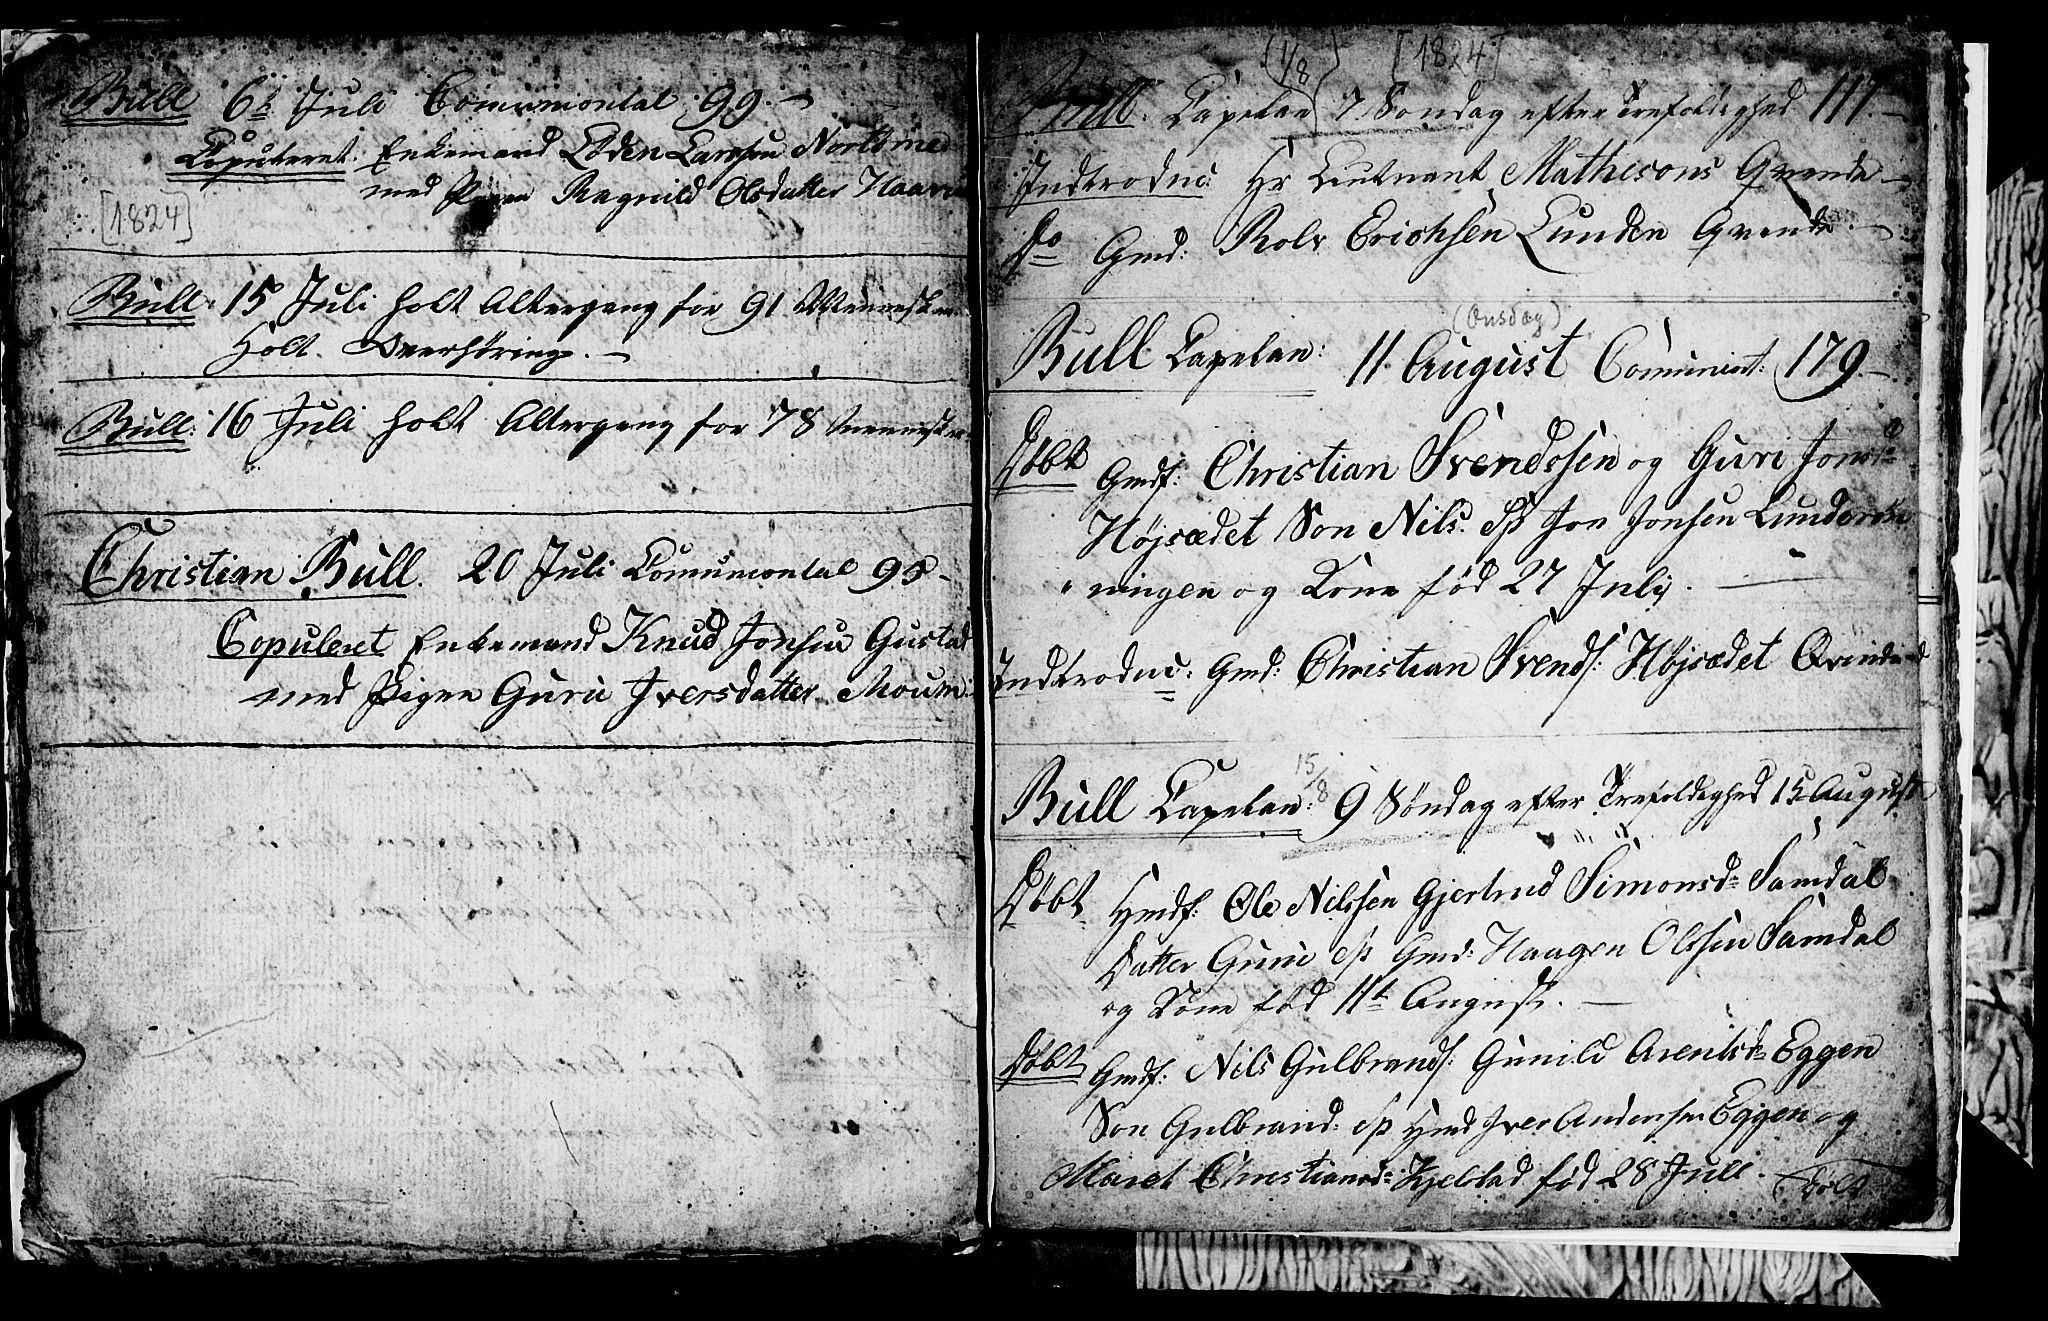 Bull 6t Juli Comunicontal 99.
Copuleret. Enkemand Loden Larssen Nordsmed
med Pigen Ragnild Olsdatter Haaren
[1824]
Bull: 15 Juli holt Altergang for 91 Mennesker.
Holt Overhöring.
Bull: 16 Juli holt Altergang for 78 Mennesker.
Christian Bull. 20 Juli Comunicontal 95
Copuleret Enkemand Knud Jonsen Gustad
med Pigen Guru Iversdatter Moum
(1/8) [1824]
Bull. Capelan 7 Søndag efter Trefoldighed 117.
Indtroduc: Hr Leutnant Mathesons Qvinde
Do Gmd: Rolv Erichsen Lunden Qvinde.
(Onsdag)
Bull Capelan: 11 August Comunicant: 179.
Døbt Gmdf: Christian Svendssen og Guri Jonsd:
Højsædet Søn Nils. Sp Jon Jonsen Lunderøn
" ningen og Kone fød 27 Julij.
Indtroduc: Gmd: Christian Svends: Højsædet Qvinde
15/8
Bull Capelan: 9 Søndag efter Trefoldighed 15 August
Døbt Hmdf: Ole Nilssen Gjertrud Simonsd: Samdal
Datter Guru Sp Gmd: Haagen Olssen Samdal
og Kone fød 11t August.
Døbt Gmdf: Nils Gulbrands: Gunild Arentsd: Eggen
Søn Gulbrand: Sp Hmd Iver Andersen Eggen og
Maret Christiansd: Kjelstad fød 28 Juli. Døbt